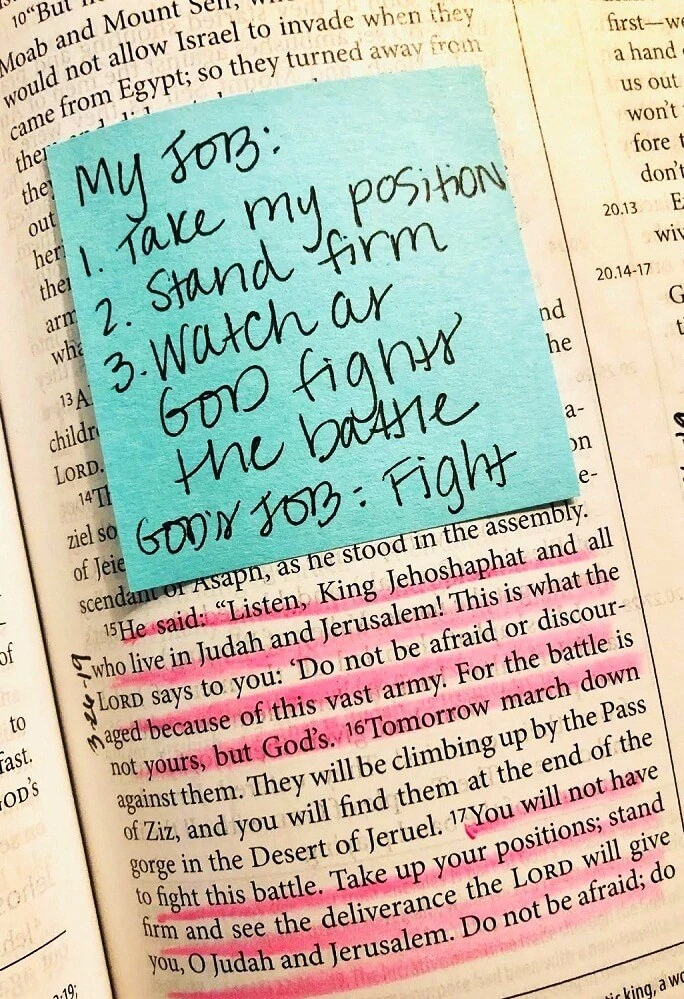 10“But
Moab and Mount Seir,
would not allow Israel to invade when they
came from Egypt; so they turned away from
My JOB:
1. Take my position
2. Stand firm
3. Watch as
GOD fights
the battle
GOD's JOB: Fight
13A
childr
LORD.
14Th
ziel so
of Jeie
scendant of Asaph, as he stood in the assembly.
15He said: “Listen, King Jehoshaphat and all
who live in Judah and Jerusalem! This is what the
LORD says to you: ‘Do not be afraid or discour-
aged because of this vast army. For the battle is
not yours, but God’s. 16Tomorrow march down
against them. They will be climbing up by the Pass
of Ziz, and you will find them at the end of the
gorge in the Desert of Jeruel. 17You will not have
to fight this battle. Take up your positions; stand
firm and see the deliverance the LORD will give
you, O Judah and Jerusalem. Do not be afraid; do
3-26-19
of
to
fast.
GOD’S
first—we
a hand
us out
won’t
fore t
don’t
20.13
wiv
20.14-17
king, a wo